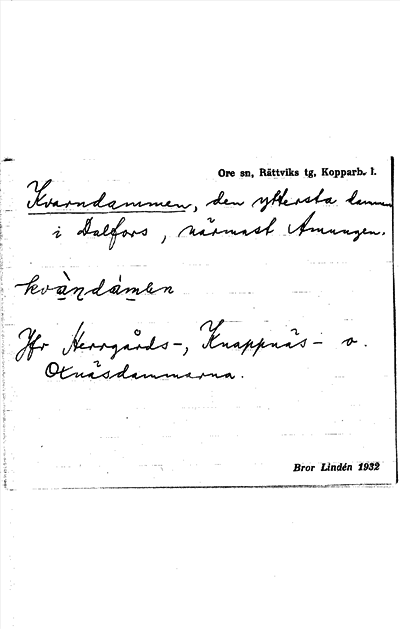 Ore sn, Rättviks tg, Kopparb. l.
Kvarndammen, den yttersta dammen
i Dalfors, närmast Amungen.
kvàṇdámen
Jfr Herrgårds-, Knappnäs- o.
Oxnäsdammarna.
Bror Lindén 1932